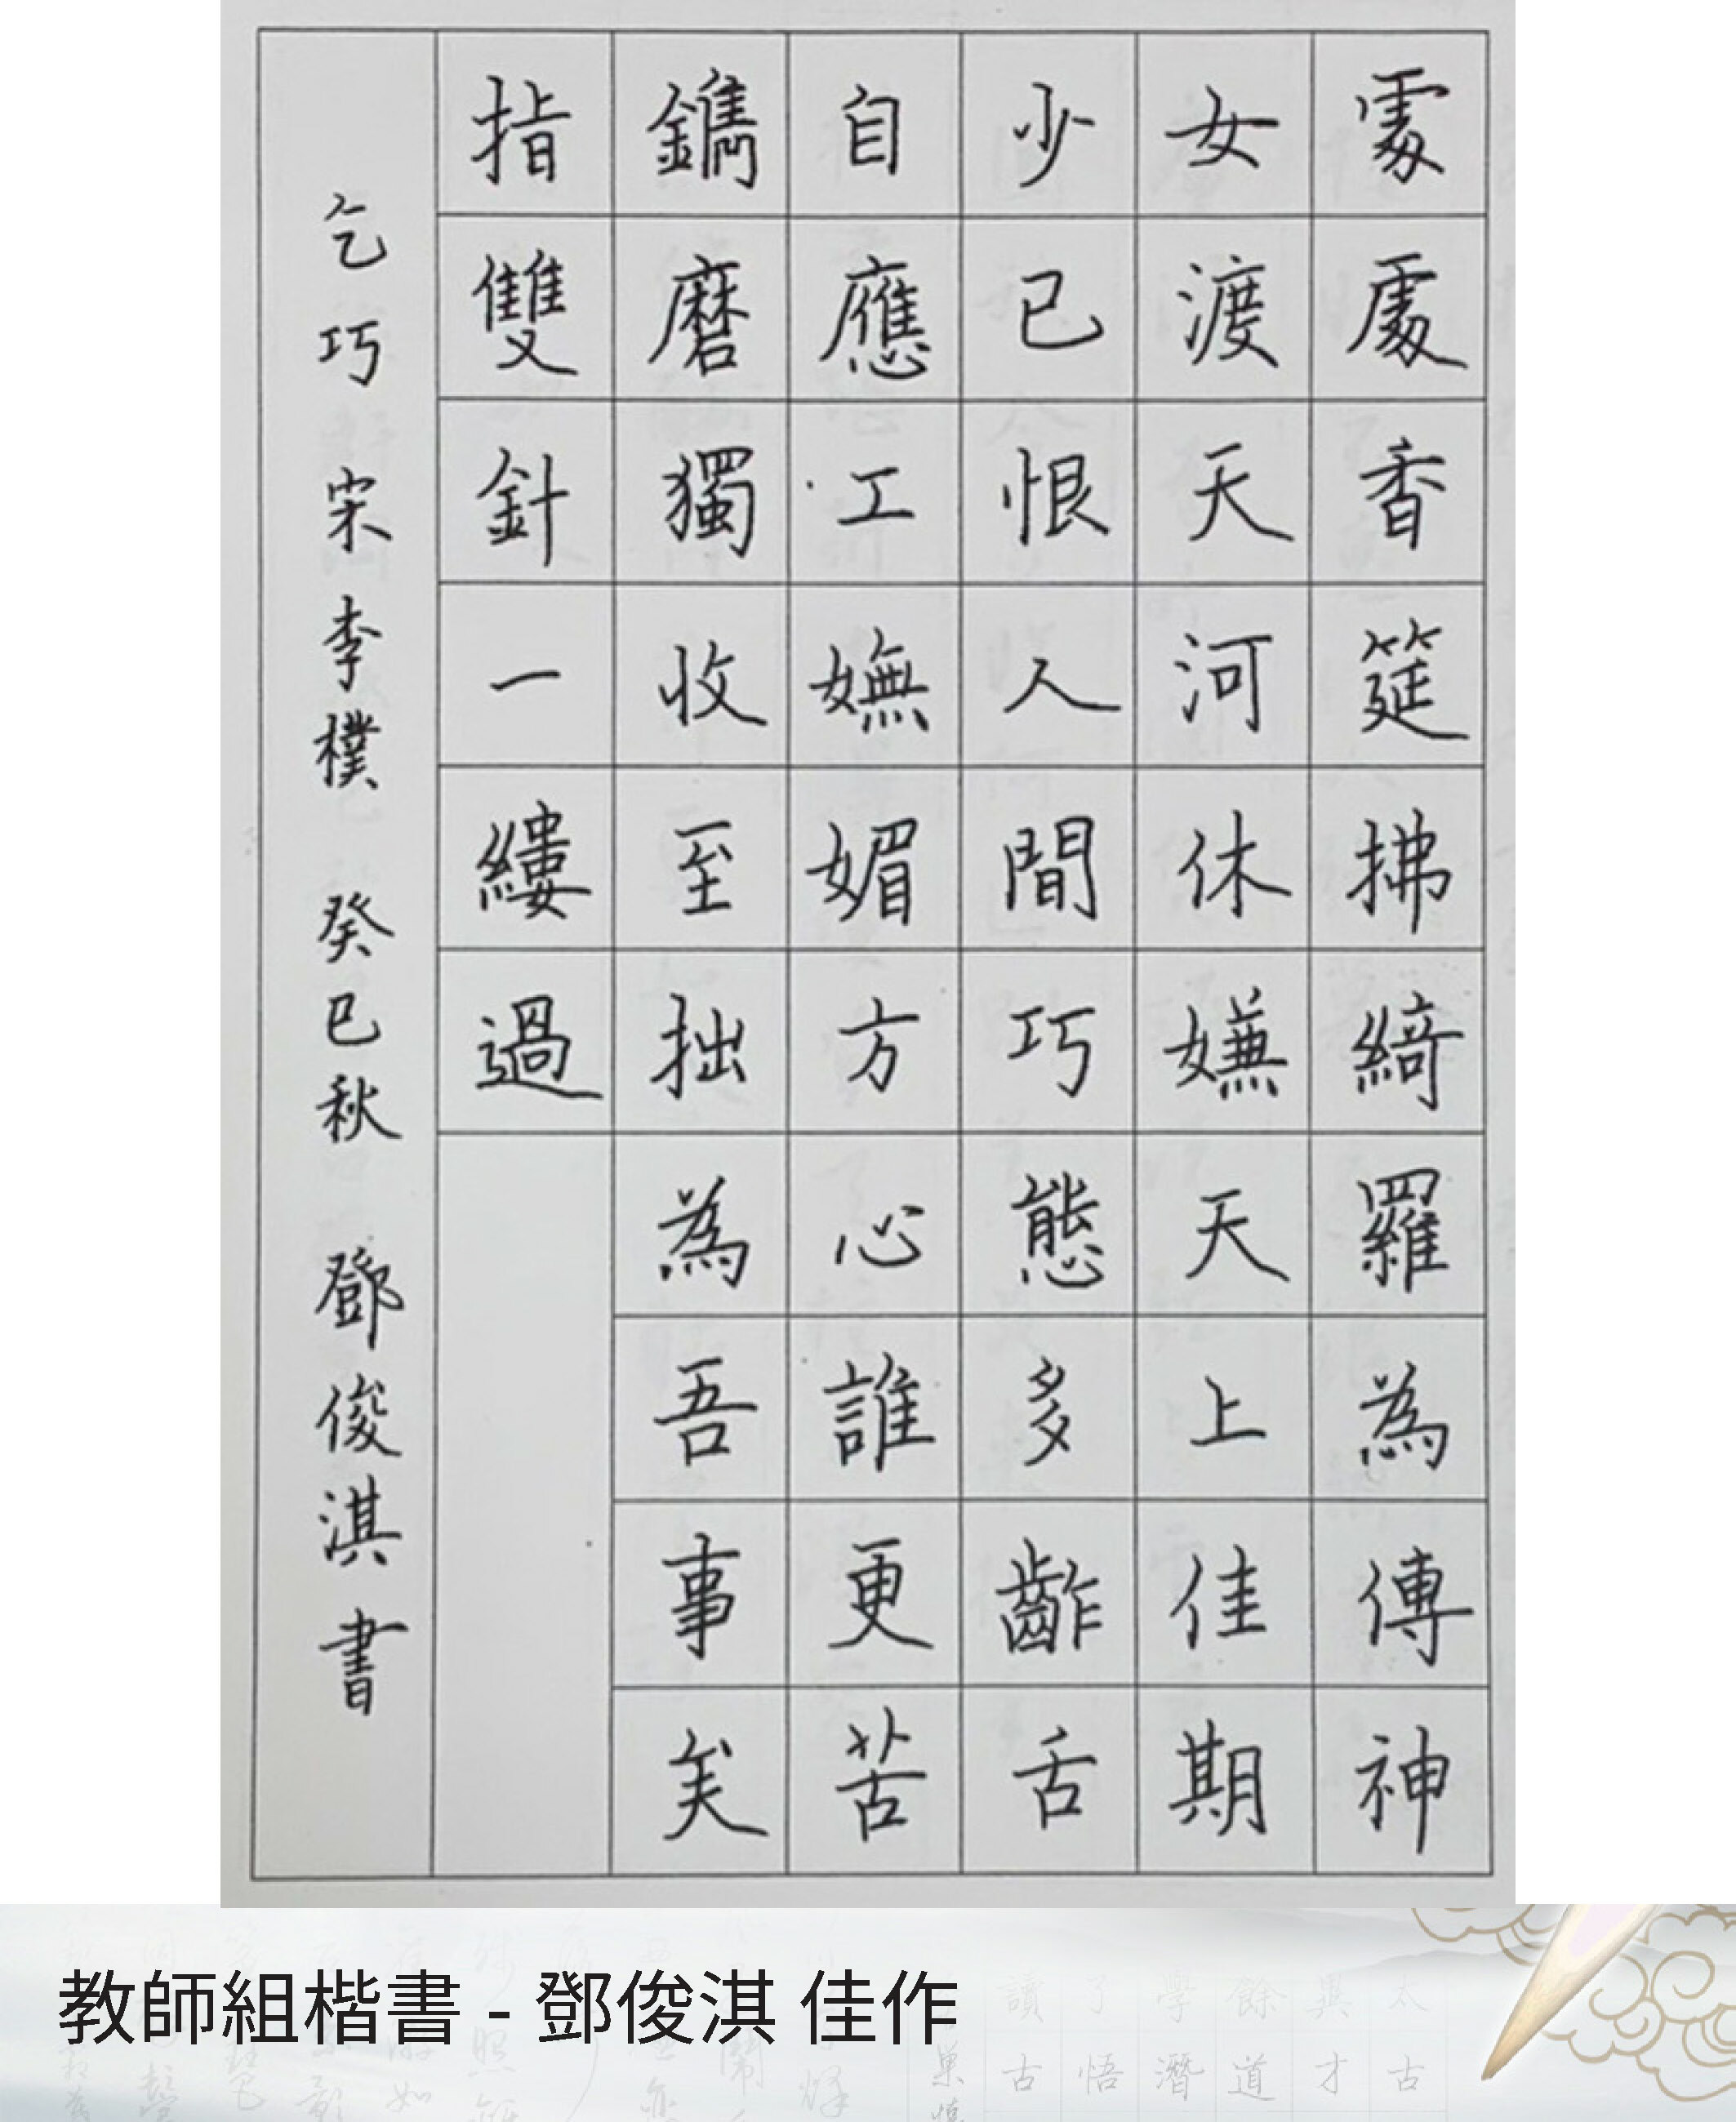 處處香筵拂綺羅為傳神
女渡天河休嫌天上佳期
少已恨人間巧態多齰舌
自應工嫵媚方心誰更苦
鐫磨獨收至拙為吾事矣
指雙針一縷過
乞巧 宋 李樸 癸巳秋 鄧俊淇書
教師組楷書 - 鄧俊淇 佳作